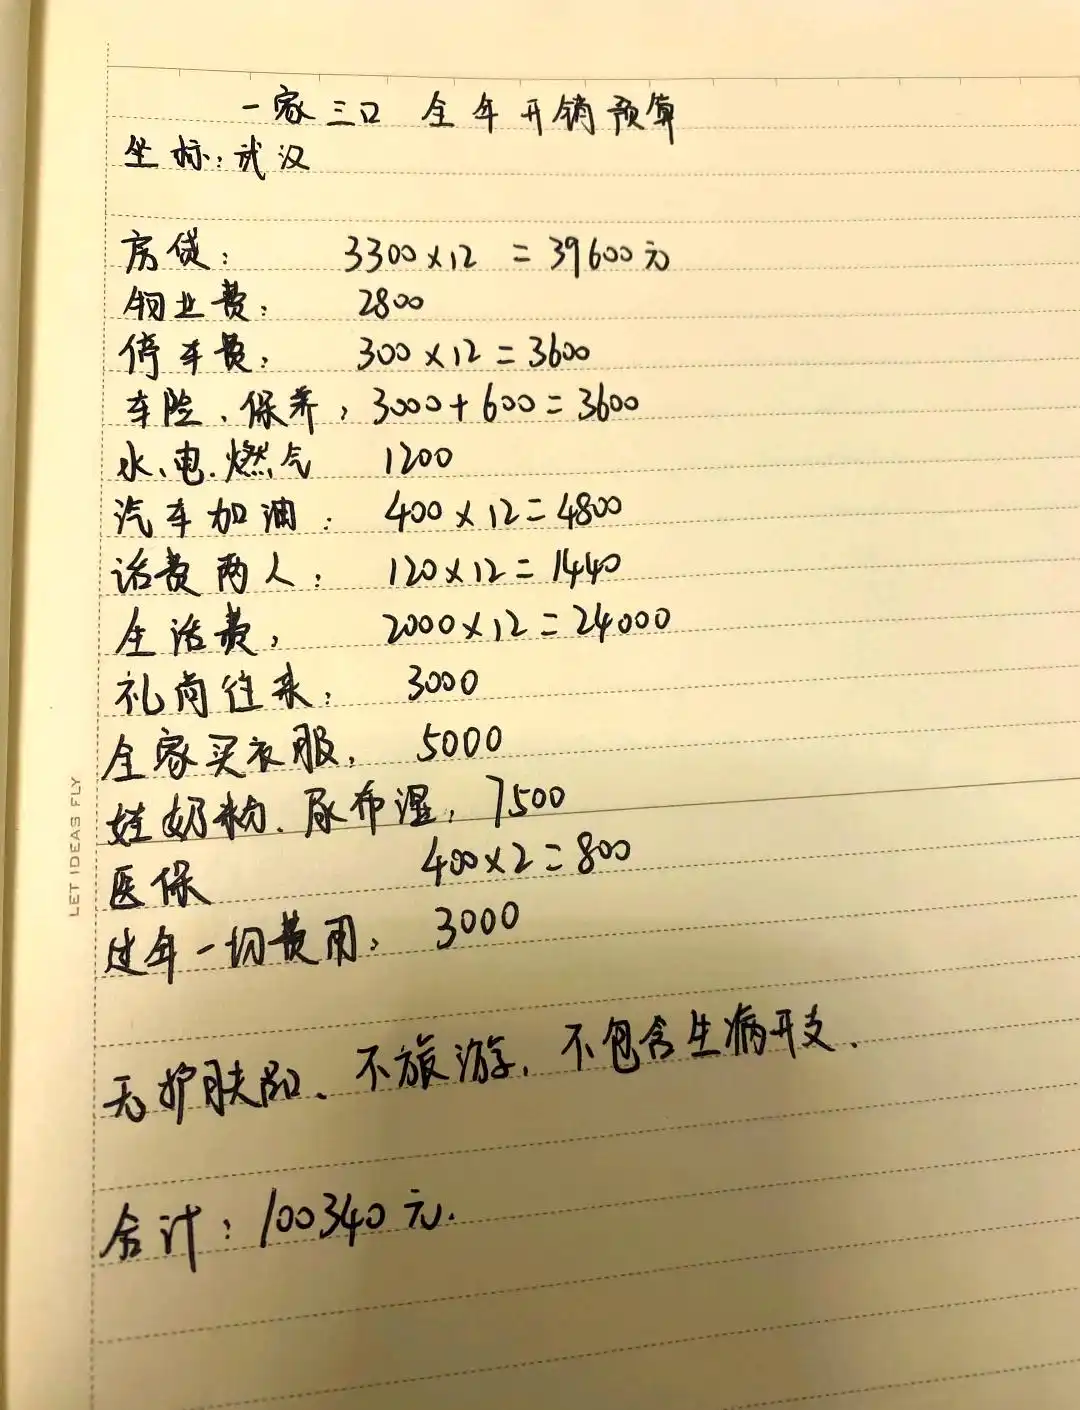 一家三口 全年开销预算
坐标：武汉
房贷： 3300×12 = 39600元
物业费： 2800
停车费： 300×12=3600
车险、保养：3000+600=3600
水、电、燃气 1200
汽车加油： 400×12=4800
话费两人： 120×12=1440
生活费： 2000×12=24000
礼尚往来： 3000
全家买衣服： 5000
娃奶粉、尿布湿：7500
医保 400×2=800
过年一切费用： 3000
无护肤品、不旅游，不包含生病开支．
合计：100340元．
LET IDEAS FLY